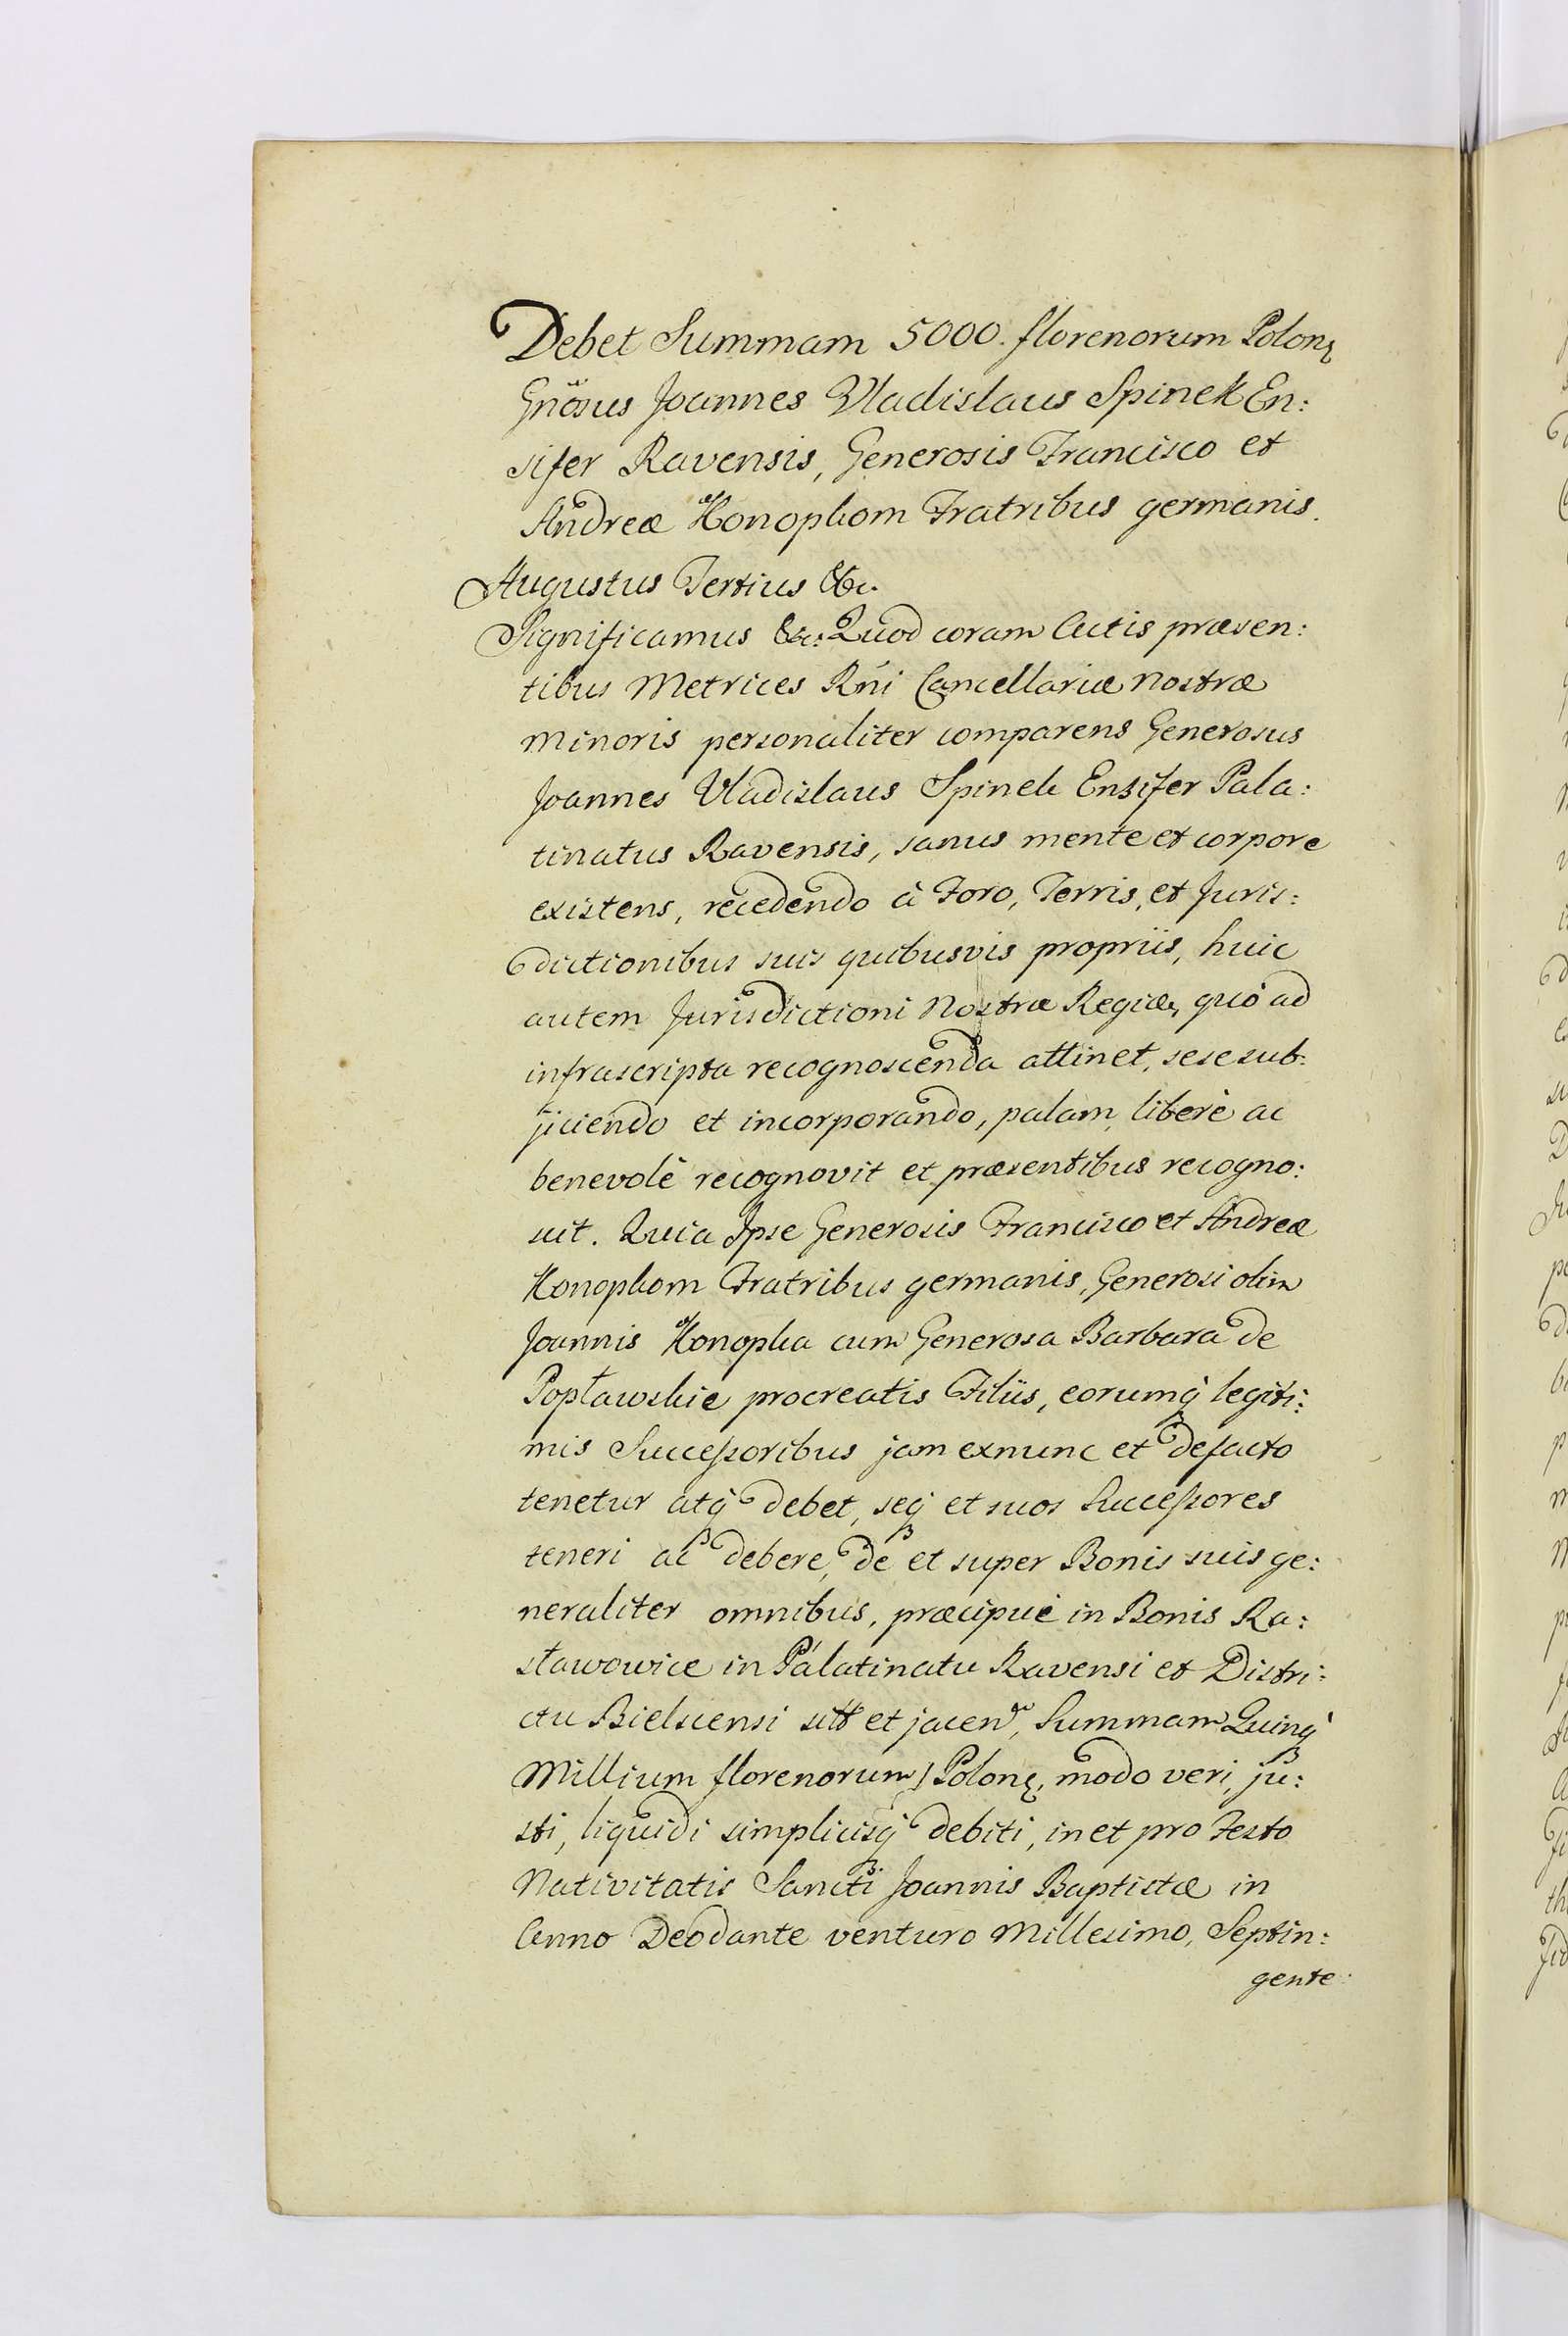 Debet Summam 5000. florenorum Polon
Gnosus Joannes Vladislaus Spinek En:
sifer Ravensis, Generosis Francisco et
Andreæ Konopkom Fratribus germanis.
Augustus Tertius &c.
Significamus &c: Quod coram Actis præsen:
tibus Metrices Rni Cancellariæ Nostræ
Minoris personaliter comparens Generosus
Joannes Vladislaus Spinek Ensifer Pala:
tinatus Ravensis, sanus mente et corpore
existens, recedendo à Foro, Terris, et Juris:
dictionibus suis quibusvis propriis, huic
autem Jurisdictioni Nostræ Regiæ, quò ad
infrascripta recognoscenda attinet, sese sub:
jiciendo et incorporando, palam, liberè ac
benevolè recognovit et præsentibus recogno:
scit. Quia Ipse Generosis Francisco et Andreæ
Konopkom Fratribus germanis, Generosi olim
Joannis Konopka cum Generosa Barbara de
Popławskie procreatis Filiis, eorumq legiti:
mis Successoribus jam exnunc et defacto
tenetur atq debet, seq et suos Successores
teneri ac debere, de et super Bonis suis ge:
neraliter omnibus, præcipuè in Bonis Ra:
sławowice in Palatinatu Ravensi et Distri:
ctu Bielscensi sitt et jacen, Summam Quinq
Millium florenorum Polon, modo veri, ju:
sti, liquidi simplicisq debiti, in et pro Festo
Nativitatis Sancti Joannis Baptistæ in
Anno Deo dante venturo Millesimo, Septin:
gente